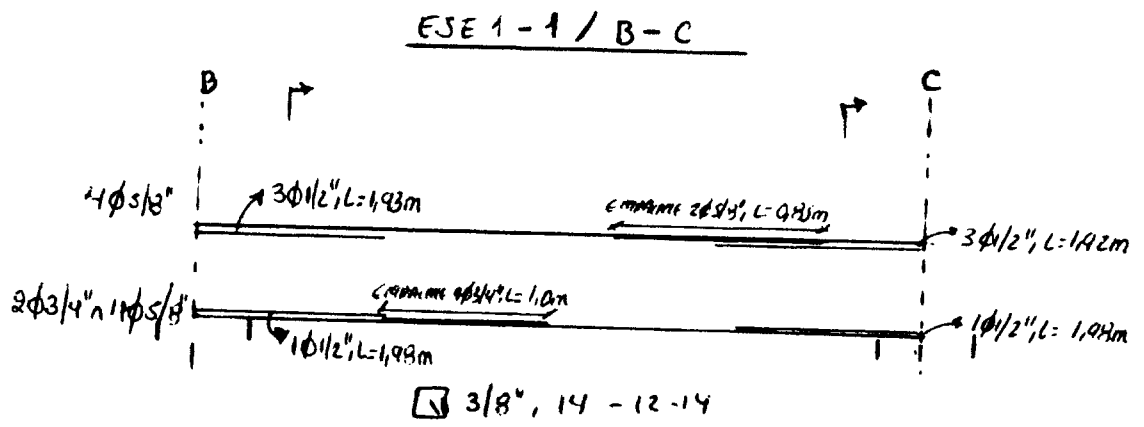 EJE 1-1 / B-C
B
C
4φ5/8"
3φ1/2", L=1,93m
EMPALME 2φ5/8", L=0,85m
3φ1/2", L=1,92m
2φ3/4" ∩ 1φ5/8"
EMPALME 2φ3/4", L=1,0m
1φ1/2", L=1,98m
1φ1/2", L=1,98m
3/8", 14 - 12 - 14